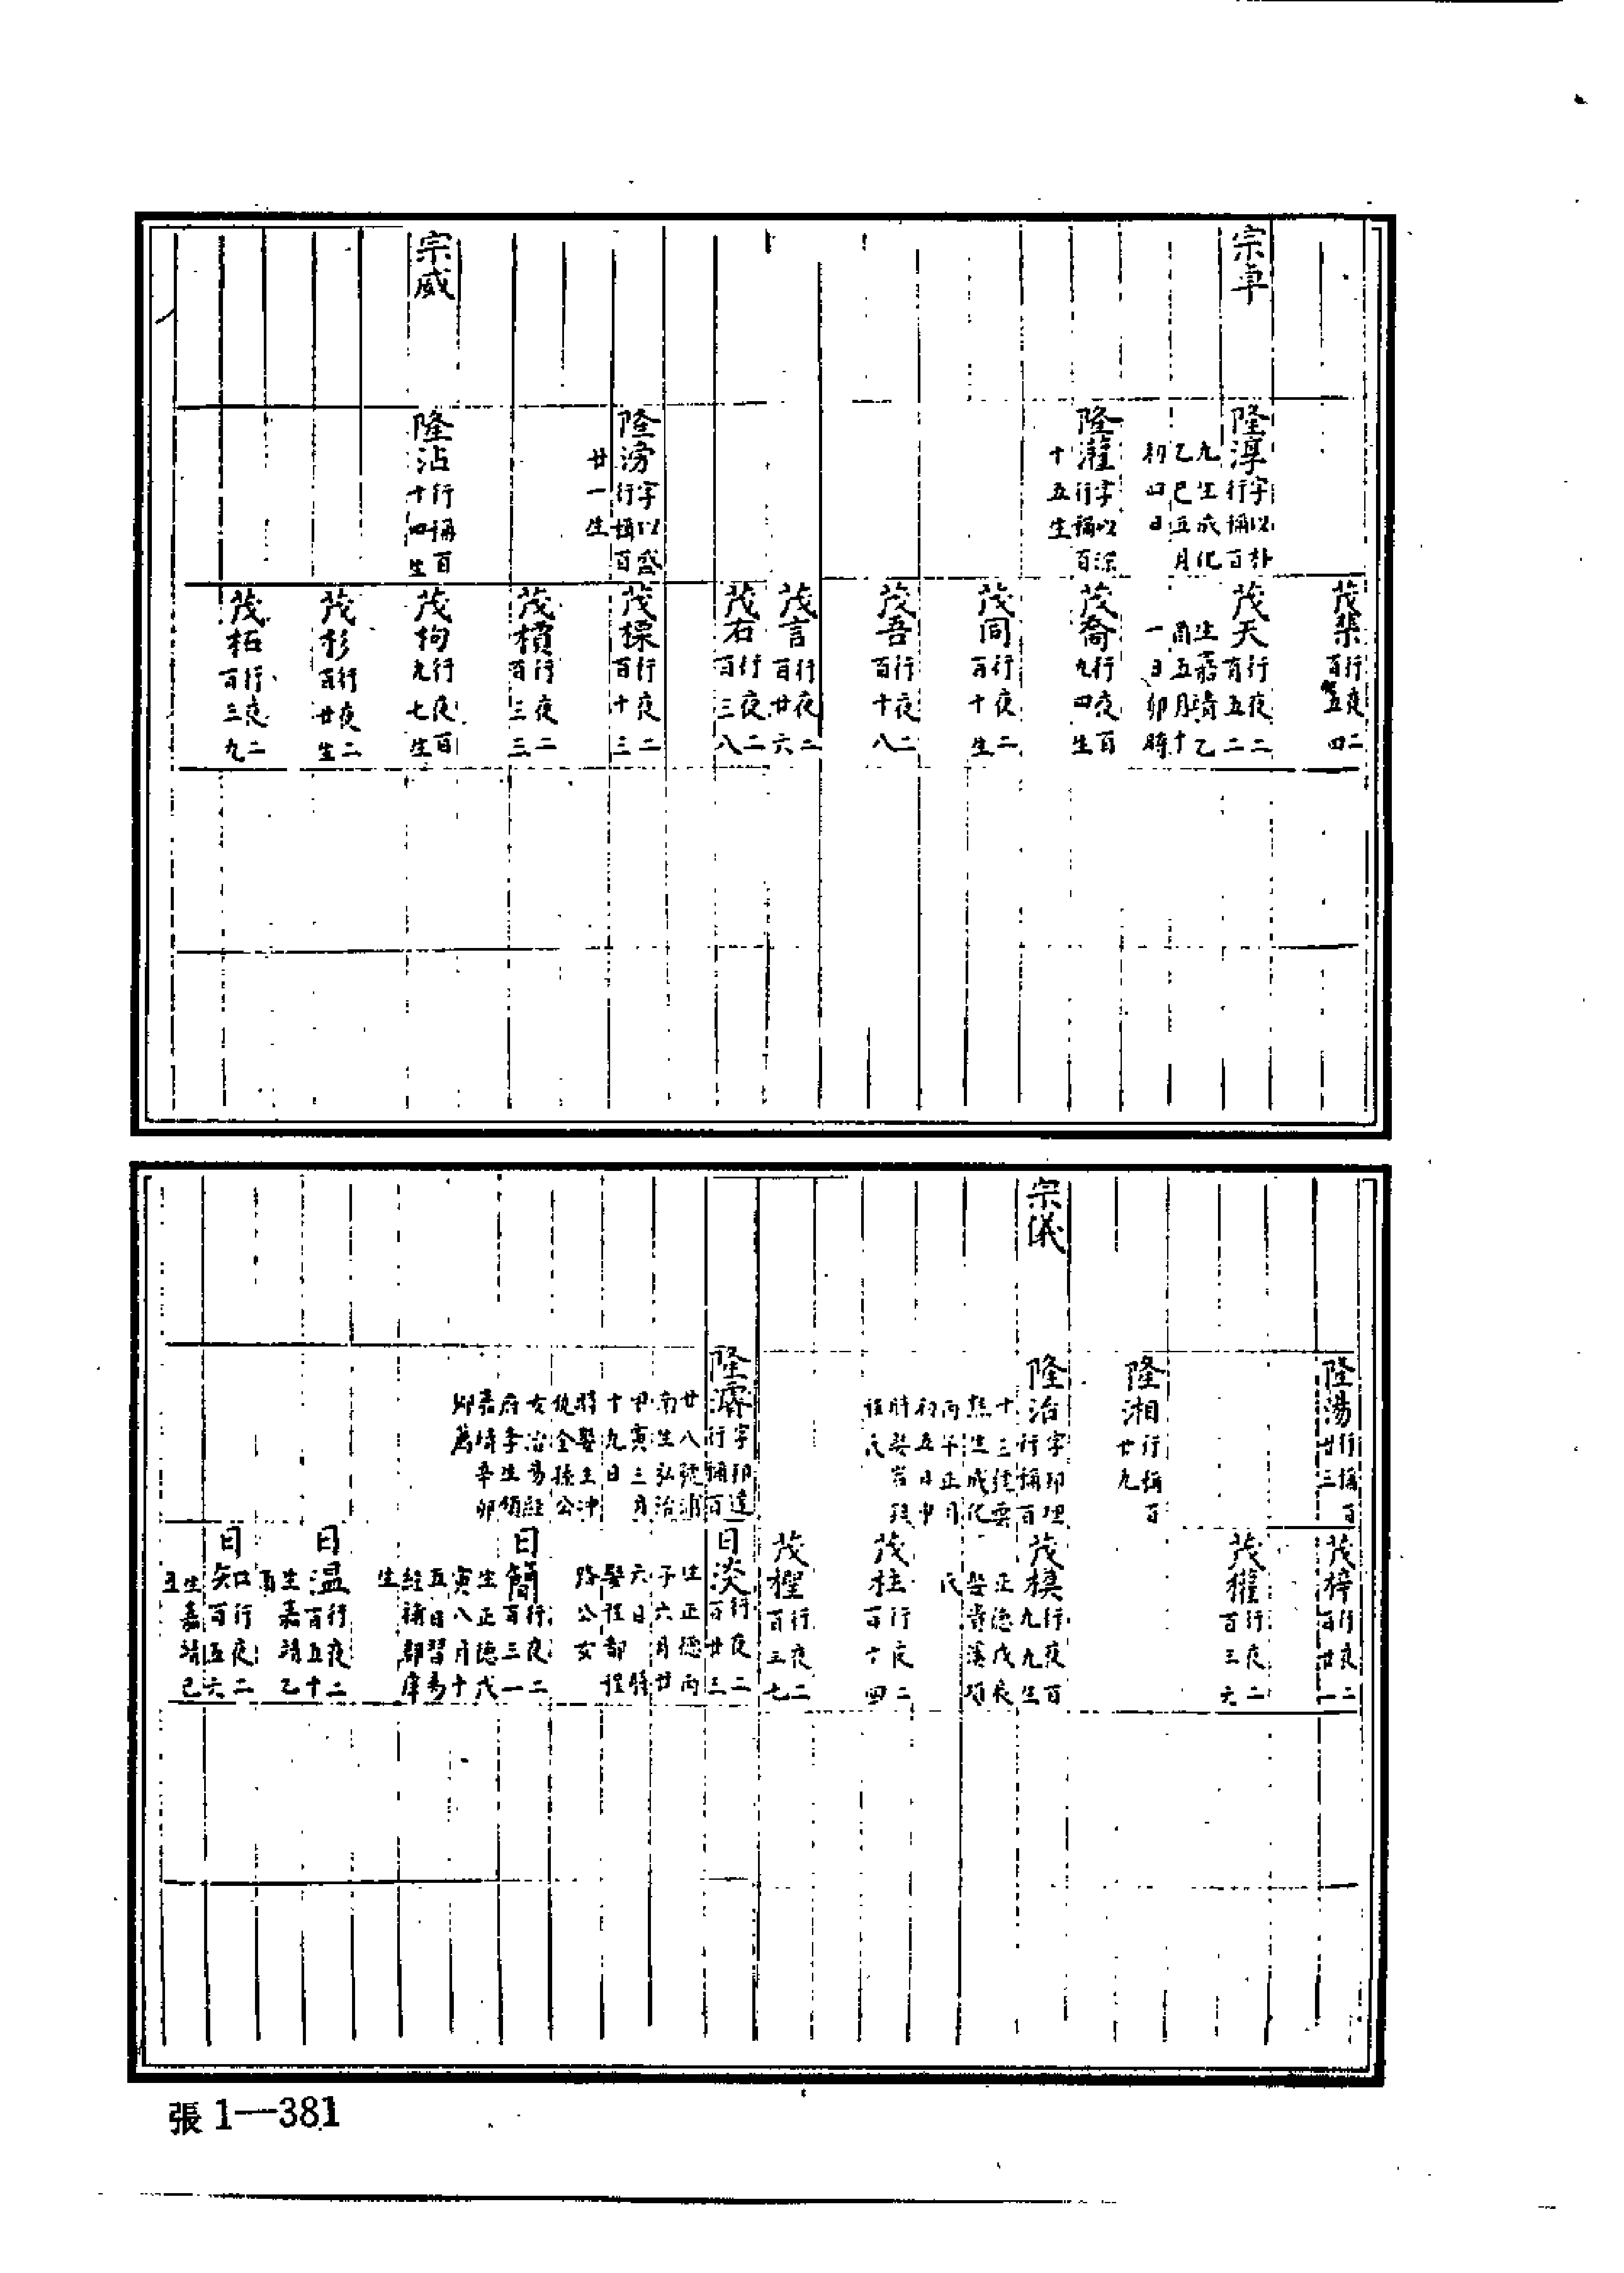 茂𣗳行夜二百五四
宗卓
隆淳字以朴行稱百九生成化乙巳五月初四日
茂天行夜二百五二生嘉靖乙酉五月十一日卯時
隆灌字以深行稱百十五生
茂喬行夜百九四生
茂同行夜二百十生
茂吾行夜二百十八
茂言行夜二百廿六
茂右行夜二百三八
隆滂字以盛行稱百廿一生
茂標行夜二百十三
茂檟行夜二百三三
宗威
隆沾行稱百十四生
茂枸行夜百九七生
茂杉行夜二百廿生
茂柘行夜二百三九
隆湯行稱百廿三
茂梓行夜二百廿一
茂權行夜二百三六
隆湘行稱百廿九
宗儀
隆治字卬理行稱百十三生成化丙午正月初五日申時娶岩鎮程氏
茂模行夜百九九生正德戊辰娶項氏
茂柱行夜二百十四
茂檉行夜二百三七
隆濟字卬達行稱百廿八號浦南生弘治甲寅三月十九日時娶王沖僉孫公女治易經府學生領嘉靖辛卯鄉薦
日淡行夜二百廿三生正德丙子六月廿六日時娶程部程路公女
日簡行夜二百三一生正德戊寅八月十五日習易經補郡庠生
日温行夜二百五十生嘉靖乙酉
日知行夜二百五六生嘉靖己丑
張1—381